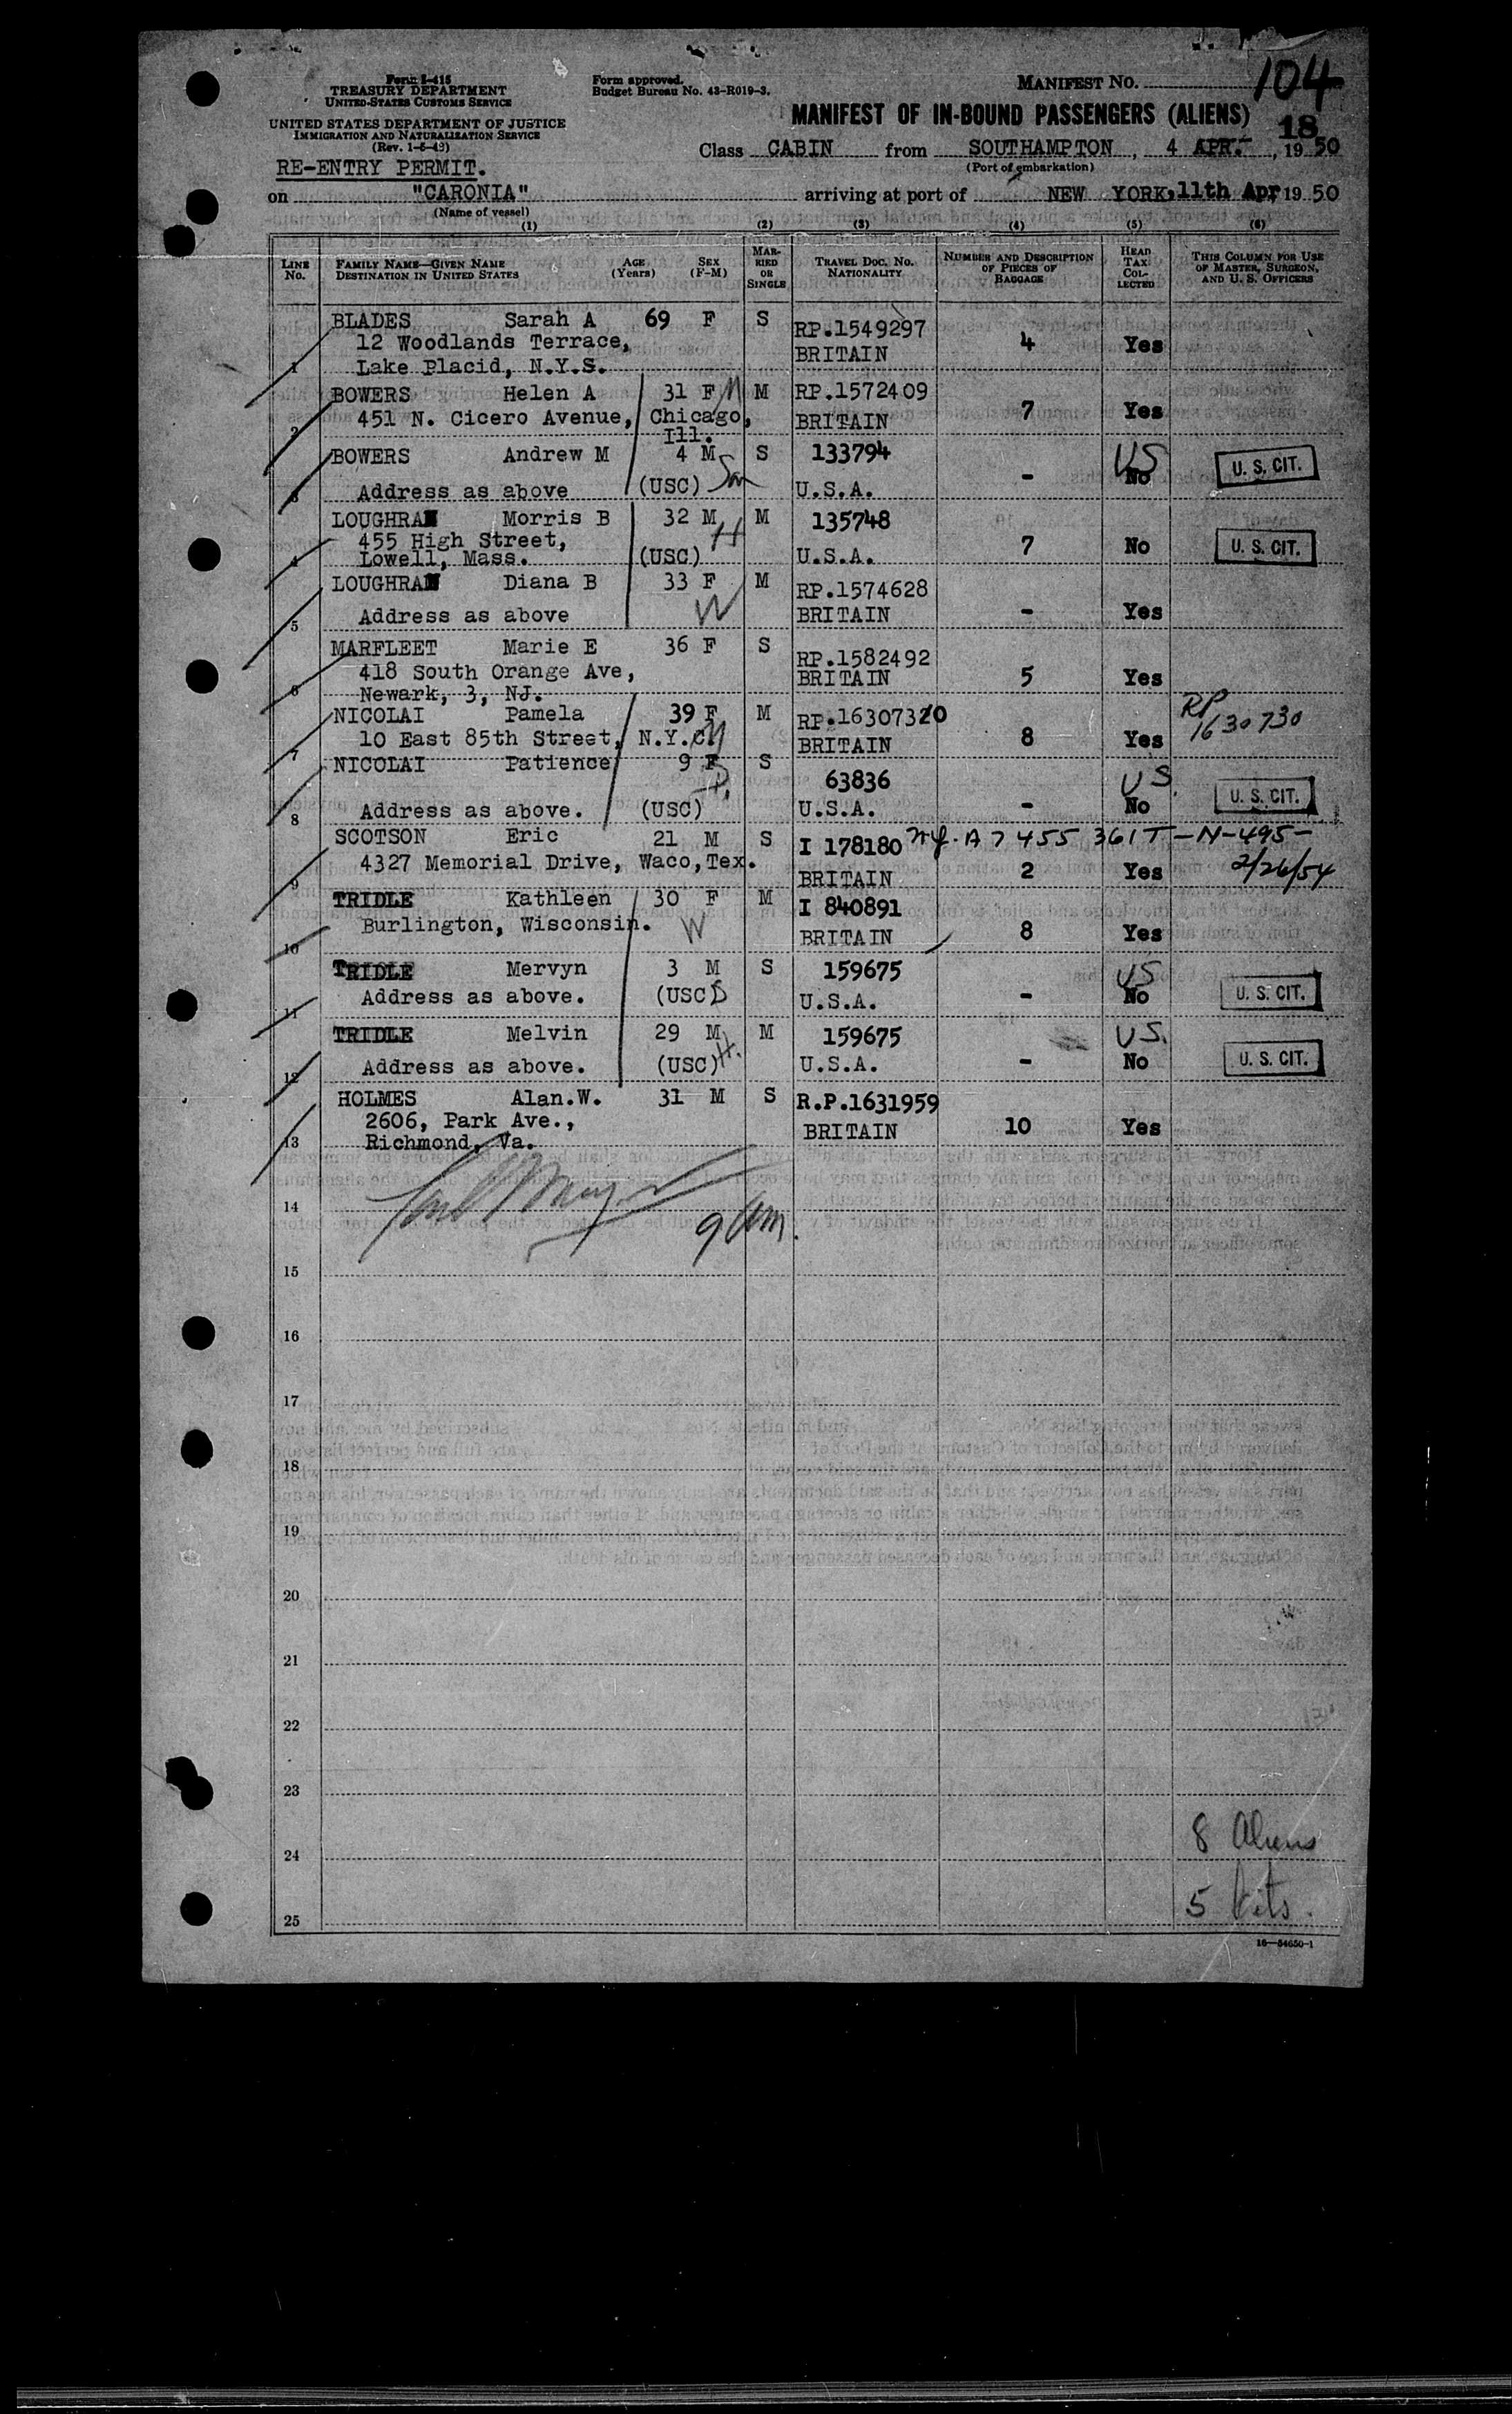 Form I-415
TREASURY DEPARTMENT
UNITED STATES CUSTOMS SERVICE
UNITED STATES DEPARTMENT OF JUSTICE
IMMIGRATION AND NATURALIZATION SERVICE
(Rev. 1-5-49)
Form approved.
Budget Bureau No. 43-R019-3.
MANIFEST NO. 104
MANIFEST OF IN-BOUND PASSENGERS (ALIENS)
18
Class CABIN from SOUTHAMPTON, 4 APR., 1950
(Port of embarkation)
RE-ENTRY PERMIT.
on "CARONIA" arriving at port of NEW YORK, 11th Apr 1950
(Name of vessel)
(1) (2) (3) (4) (5) (6)
LINE No. FAMILY NAME—GIVEN NAME DESTINATION IN UNITED STATES AGE (Years) SEX (F-M) MARRIED OR SINGLE TRAVEL DOC. NO. NATIONALITY NUMBER AND DESCRIPTION OF PIECES OF BAGGAGE HEAD TAX COLLECTED THIS COLUMN FOR USE OF MASTER, SURGEON, AND U. S. OFFICERS
BLADES Sarah A 69 F S RP.1549297
12 Woodlands Terrace, 4 Yes
1 Lake Placid, N.Y.S. BRITAIN
BOWERS Helen A 31 F M RP.1572409
451 N. Cicero Avenue, Chicago, BRITAIN 7 Yes
2 Ill.
BOWERS Andrew M 4 M S 133794 US
3 Address as above (USC) U.S.A. - No U. S. CIT.
LOUGHRAN Morris B 32 M H M 135748
455 High Street, 7 No U. S. CIT.
4 Lowell, Mass. (USC) U.S.A.
LOUGHRAN Diana B 33 F W M RP.1574628
5 Address as above BRITAIN - Yes
MARFLEET Marie E 36 F S RP.1582492
418 South Orange Ave, BRITAIN 5 Yes
6 Newark, 3, NJ.
NICOLAI Pamela 39 F M RP.16307320 RP 1630730
7 10 East 85th Street, N.Y.C. BRITAIN 8 Yes
NICOLAI Patience 9 F S 63836 US.
8 Address as above. (USC) U.S.A. - No U. S. CIT.
SCOTSON Eric 21 M S I 178180 A7455361T-N-495-
9 4327 Memorial Drive, Waco, Tex. BRITAIN 2 Yes 2/26/54
TRIDLE Kathleen 30 F W M I 840891
10 Burlington, Wisconsin. BRITAIN 8 Yes
TRIDLE Mervyn 3 M S 159675 US
11 Address as above. (USC) U.S.A. - No U. S. CIT.
TRIDLE Melvin 29 M H. M 159675 US.
12 Address as above. (USC) U.S.A. - No U. S. CIT.
HOLMES Alan.W. 31 M S R.P.1631959
2606, Park Ave., BRITAIN 10 Yes
13 Richmond, Va.
14
15
16
17
18
19
20
21
22
23
24 8 Aliens
25 5
16—54650-1